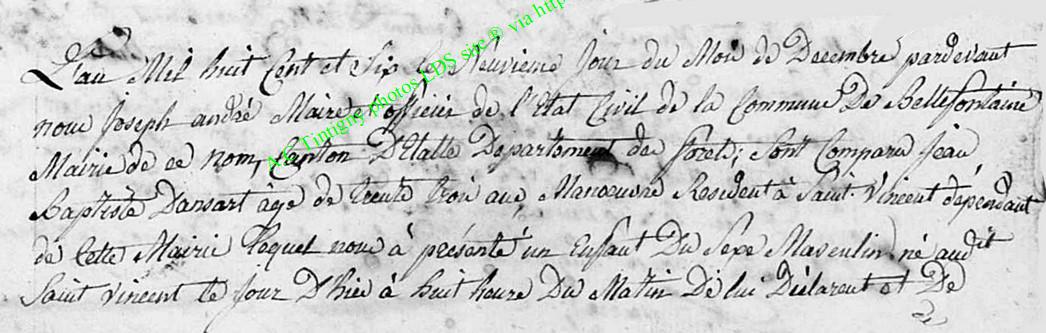 L'an Mil huit Cent et Six le Neuvieme Jour du Mois de Decembre pardevant
nous Joseph andré Maire et officier de l'Etat Civil de la Commune De Bellefontaine
Mairie de ce nom, Canton D'Etalle Departement des forets; Sont Comparu Jean
Baptiste Dansart âge de trente trois ans Manoeuvre Resident à Saint Vincent dépendant
de Cette Mairie lequel nous à présenté un Enfant Du Sexe Masculin né audit
Saint Vincent le Jour D'hier à huit heure Du Matin De lui Déclarent et De
A.C Tintigny photos LDS site® via http